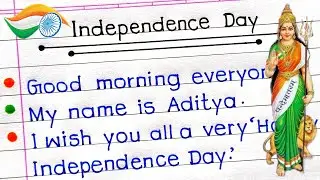 Independence Day
Good morning everyon
My name is Aditya.
I wish you all a very 'Ha
Independence Day.'